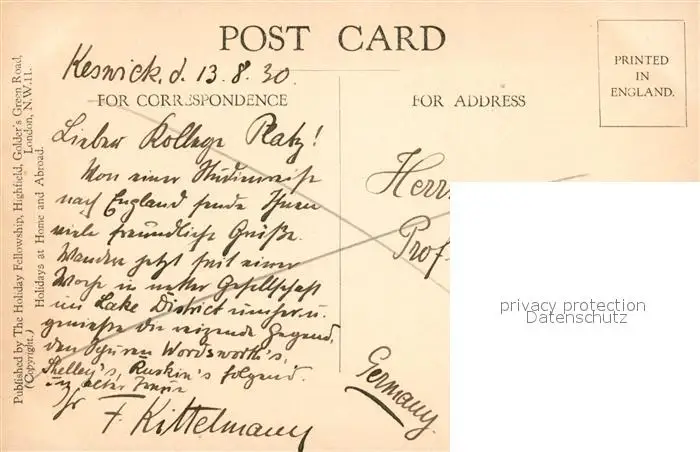 POST CARD
Keswick, d. 13.8.30.
FOR CORRESPONDENCE
Lieber Kollege Platz!
Von einer Studienreise
nach England sende Ihnen
viele freundliche Grüße.
Wandere jetzt seit einer
Woche in netter Gesellschaft
im Lake District umher u.
genieße die reizende Gegend,
den Spuren Wordsworth's,
Shelley's, Ruskin's folgend.
In alter Treue
Ihr F. Kittelmann
FOR ADDRESS
PRINTED
IN
ENGLAND.
Herrn
Prof.
Germany.
privacy protection
Datenschutz
Published by The Holiday Fellowship, Highfield, Golder's Green Road,
(Copyright.) London, N.W.11.
Holidays at Home and Abroad.